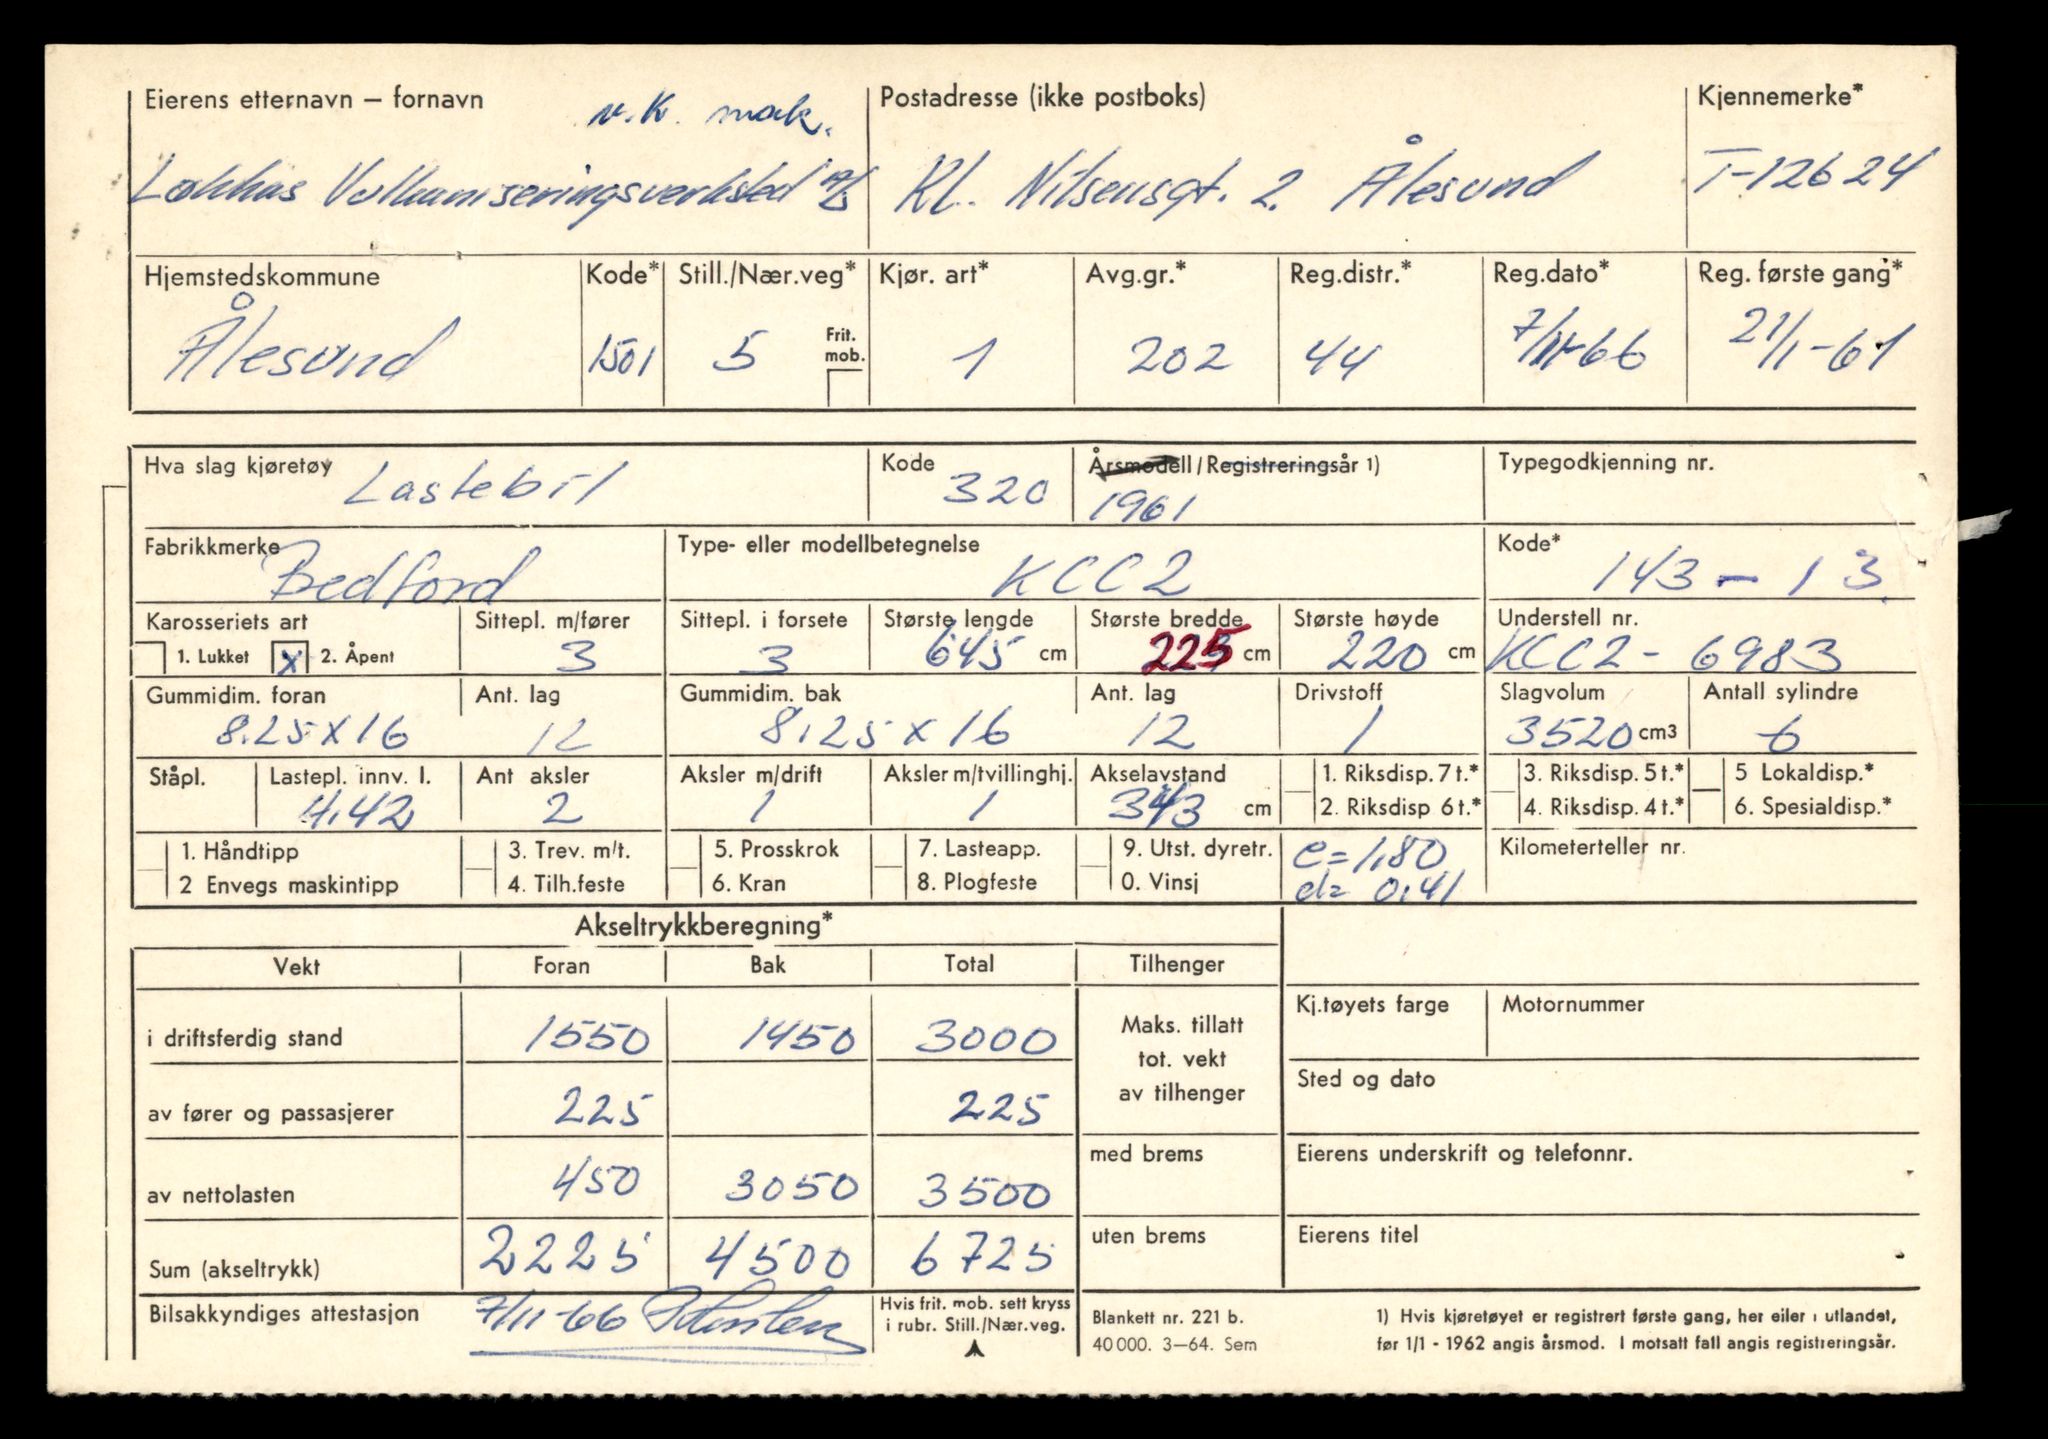 Eierens etternavn – fornavn Postadresse (ikke postboks) Kjennemerke*
v.K. mak.
Vulkaniseringsverksted A/S Kl. Nilsensgt. 2. Ålesund T-12624
Hjemstedskommune Kode* Still./Nær.veg* Kjør. art* Avg.gr.* Reg.distr.* Reg.dato* Reg. første gang*
Ålesund 1501 5 Frit. mob. 1 202 44 7/11-66 21/1-61
Hva slag kjøretøy Lastebil Kode 320 Årsmodell/Registreringsår 1) 1961 Typegodkjenning nr.
Fabrikkmerke Bedford Type- eller modellbetegnelse KCC2 Kode* 143-13
Karosseriets art Sittepl. m/fører Sittepl. i forsete Største lengde Største bredde Største høyde Understell nr.
1. Lukket x 2. Åpent 3 3 645 cm 225 cm 220 cm KCC2- 6983
Gummidim. foran Ant. lag Gummidim. bak Ant. lag Drivstoff Slagvolum Antall sylindre
8.25x16 12 8.25x16 12 1 3520 cm3 6
Ståpl. Lastepl. innv. l. Ant aksler Aksler m/drift Aksler m/tvillinghj. Akselavstand 1. Riksdisp. 7 t.* 3. Riksdisp. 5 t.* 5 Lokaldisp.*
4.42 2 1 1 343 cm 2. Riksdisp 6 t.* 4. Riksdisp. 4 t.* 6. Spesialdisp.*
1. Håndtipp 3. Trev. m/t. 5. Prosskrok 7. Lasteapp. 9. Utst. dyretr. e=1,80 Kilometerteller nr.
2 Envegs maskintipp 4. Tilh.feste 6. Kran 8. Plogfeste 0. Vinsj d= 0,41
Akseltrykkberegning*
Vekt Foran Bak Total Tilhenger
Kj.tøyets farge Motornummer
i driftsferdig stand 1550 1450 3000 Maks. tillatt
tot. vekt
av tilhenger
Sted og dato
av fører og passasjerer 225 225
med brems Eierens underskrift og telefonnr.
av nettolasten 450 3050 3500
uten brems Eierens titel
Sum (akseltrykk) 2225 4500 6725
Bilsakkyndiges attestasjon 7/11-66 Hvis frit. mob. sett kryss
i rubr. Still./Nær.veg.
Blankett nr. 221 b.
40 000. 3–64. Sem
1) Hvis kjøretøyet er registrert første gang, her eiler i utlandet,
før 1/1 - 1962 angis årsmod. I motsatt fall angis registreringsår.